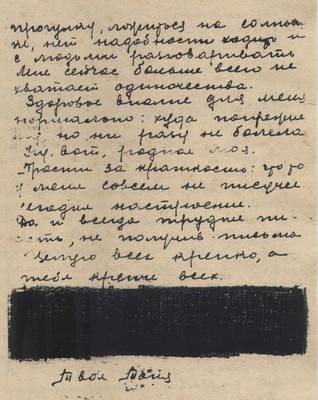 прогулку, ложиться на солныш
ке, нет надобности ходить и
с людьми разговаривать
Мне сейчас больше всего не
хватает одиночества.
Здоровье вполне для меня
нормально: худа
но ни разу не болела
Ну, вот, родная моя.
Прости за краткость: что то
у меня совсем не писучее
сегодня настроение.
Да и всегда трудно пи-
сать, не получив письма
Целую всех крепко, а
тебя крепче всех.
Твоя Таня